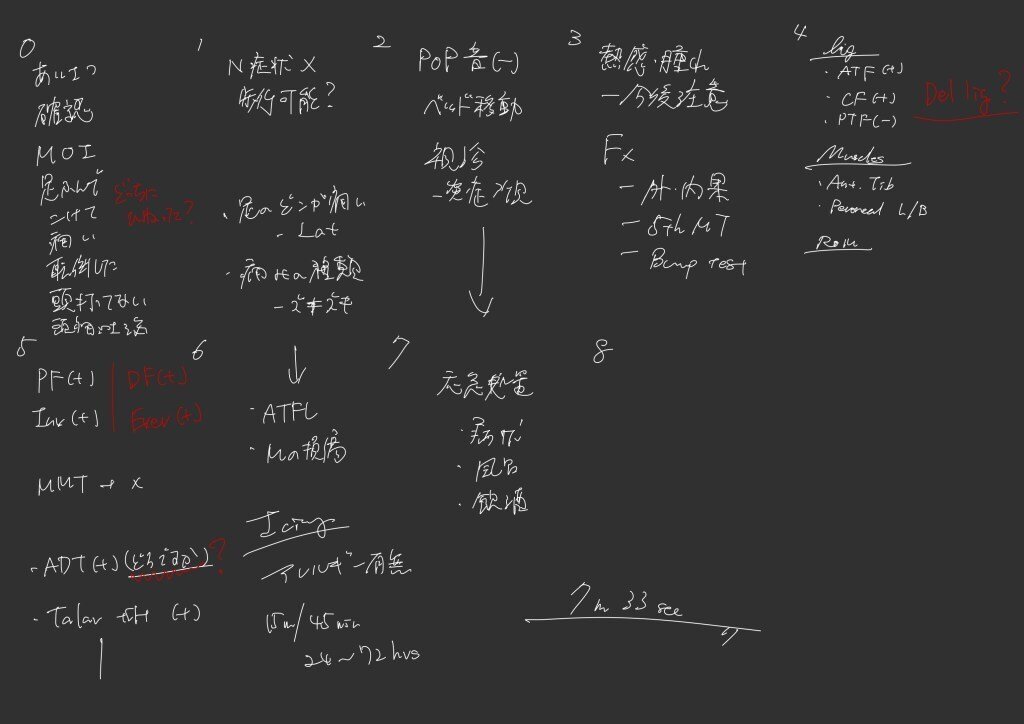 0
あいさつ
確認
MOI
足ふんで
こけて
痛い
転倒した
頭打ってない
どっちに
ひねった?
1
N症状 X
歩行可能?
・足のどこが痛い
- Lat
・痛みの種類
- ズキズキ
2
POP音(-)
ベッド移動
視診
- 炎症
3
熱感・腫れ
Fx
- 外・内果
- 5th MT
- Bump Test
4
lig
・ATF(+)
・CF(+)
・PTF(-)
Del lig?
Muscles
・Ant. Tib
・Peroneal L/B
ROM
5
PF(+)
Inv(+)
DF(+)
Ever(+)
MMT → x
・ADT(+)
?
・Talar tilt (+)
6
・ATFL
・Mm損傷
Icing
アレルギー有無
15m/45min
24~72hrs
7
応急処置
・風呂
・飲酒
8
7m 33sec